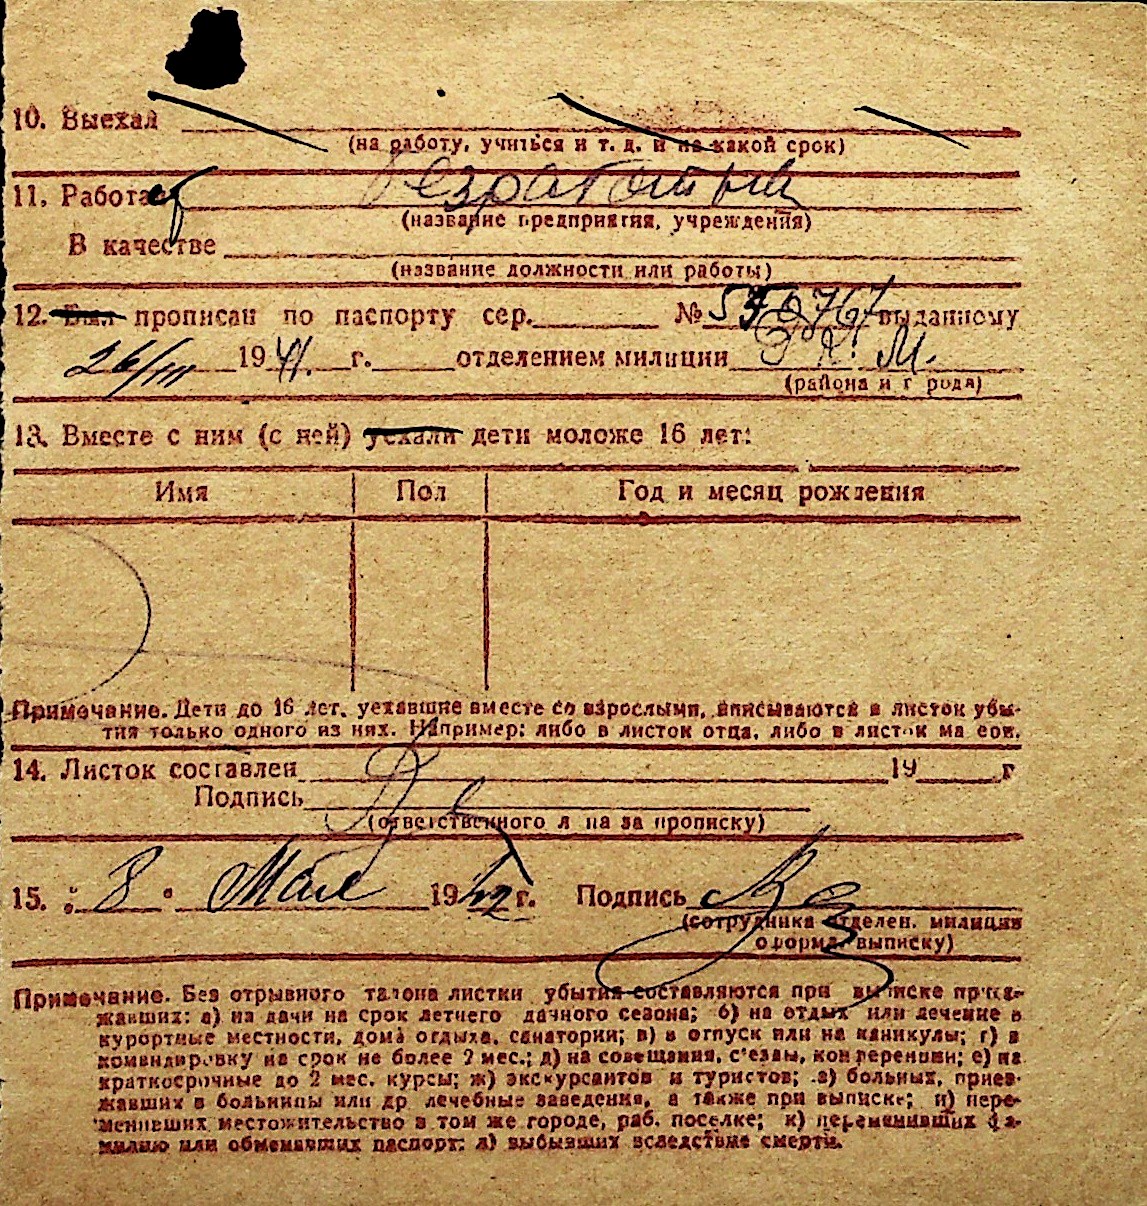 10. Выехал
(на работу, учиться и т. д. и на какой срок)
11. Работает безработный
(название предприятия, учреждения)
В качестве
(название должности или работы)
12. Был прописан по паспорту сер. № 550767 выданному
26/III 1941. г. отделением милиции Р. К. М.
(района и города)
13. Вместе с ним (с ней) уехали дети моложе 16 лет:
Имя Пол Год и месяц рождения
Примечание. Дети до 16 лет, уехавшие вместе со взрослыми, вписываются в листок убы-
тия только одного из них. Например: либо в листок отца, либо в листок матери.
14. Листок составлен 19 г
Подпись
(ответственного лица за прописку)
15. " 8 " Мая 1942 г. Подпись
(сотрудника отделен. милиции
оформ. выписку)
Примечание. Без отрывного талона листки убытия составляются при выписке приез-
жавших: а) на дачи на срок летнего дачного сезона; б) на отдых или лечение в
курортные местности, дома отдыха, санатории; в) в отпуск или на каникулы; г) в
командировку на срок не более 2 мес.; д) на совещания, с'езды, конференции; е) на
краткосрочные до 2 мес. курсы; ж) экскурсантов и туристов; з) больных, приез-
жавших в больницы или др лечебные заведения, а также при выписке; и) пере-
менивших местожительство в том же городе, раб. поселке; к) переменивших фа-
милию или обменявших паспорт; л) выбывших вследствие смерти.